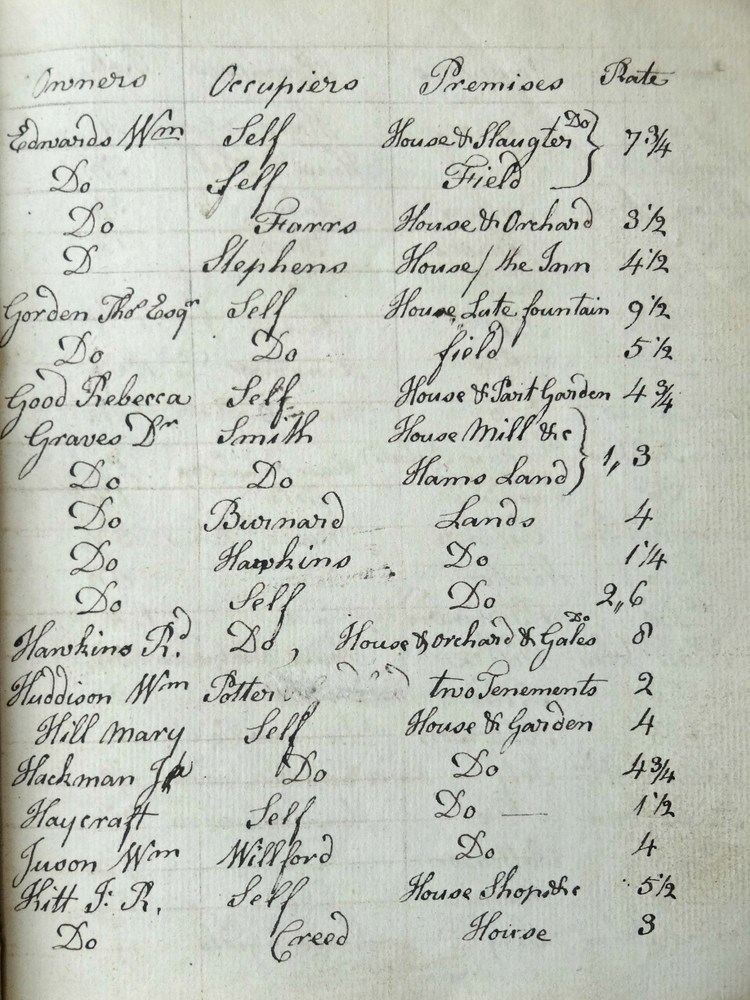 Owners Occupiers Premises Rate
Edwards Wm Self House & Slaugter Do 7 3/4
Do Self Field
Do Farrs House & Orchard 3 1/2
D Stephens House / the Inn 4 1/2
Gorden Thos Esqr Self House Late fountain 9 1/2
Do Do field 5 1/2
Good Rebecca Self House & Part Garden 4 3/4
Graves Dr Smith House Mill &c 1,, 3
Do Do Hams Land
Do Burnard Lands 4
Do Hawkins Do 1 1/4
Do Self Do 2,,6
Hawkins Rd. Do, House & orchard & Gales Do 8
Huddison Wm Potter two Tenements 2
Hill Mary Self House & Garden 4
Hackman Do Do 4 3/4
Haycraft Self Do — 1 1/2
Juson Wm Willford Do 4
Kitt J: R. Self House Shop &c 5 1/2
Do Creed House 3